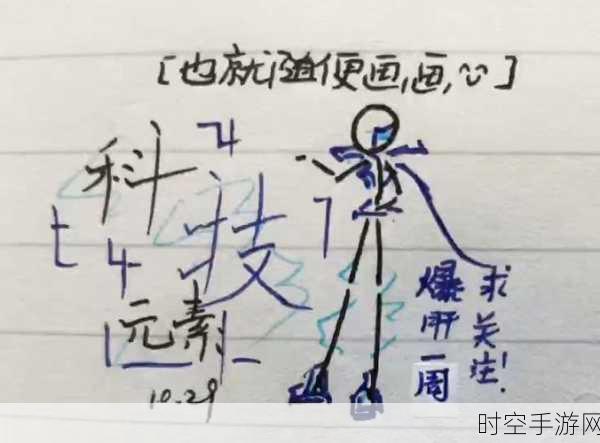 [也就随便画,画,]
科
技
元素
10.29
爆肝一周
求关注!
时空手游网